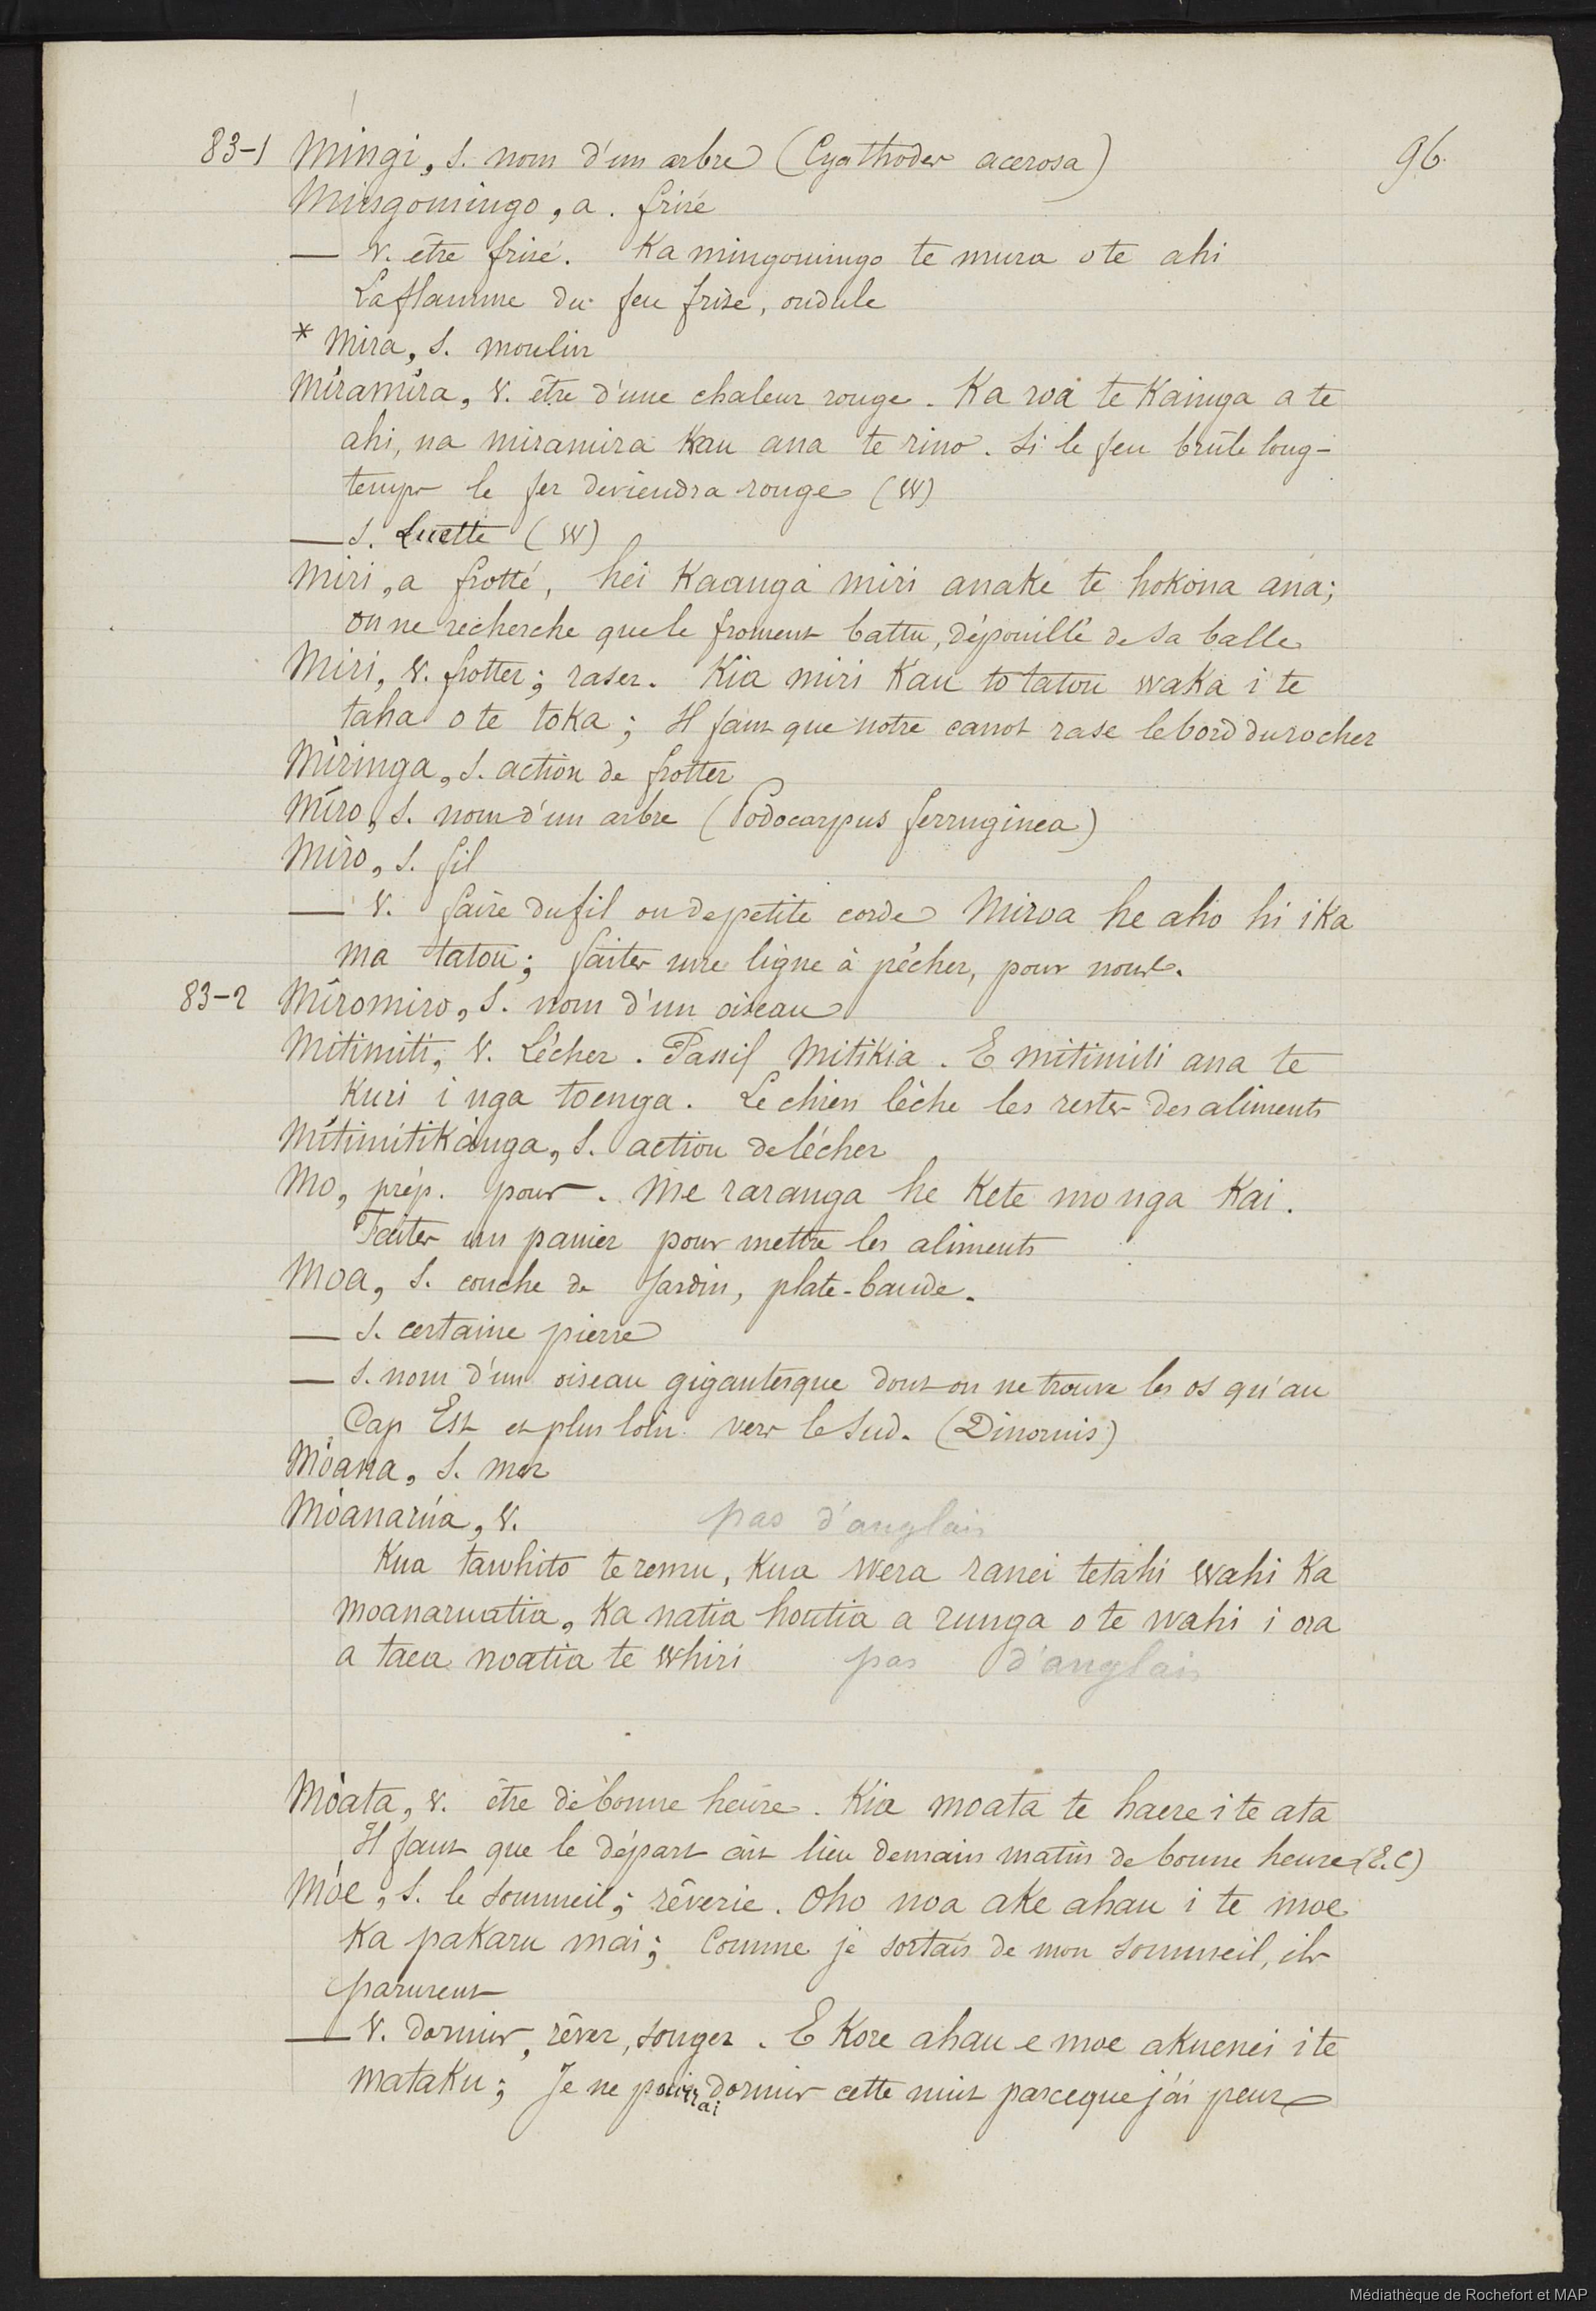 83-1 Mingi, s. nom d'un arbre (Cyathodes acerosa) 96.
Mingomingo, a. frisé
— v. être frisé. Ka mingomingo te mura o te ahi
La flamme du feu frise, ondule
* Mira, s. moulin
Míramíra, v. être d'une chaleur rouge. Ka roa te Kainga a te
ahi, na miramira Kau ana te rino. Si le feu brûle long-
temps le fer deviendra rouge (W)
— s. Luette (W)
Miri, a frotté, hei Kaanga miri anake te hokona ana;
on ne recherche que le froment battu, dépouillé de sa balle
Miri, v. frotter; raser. Kia miri Kau to tatou waka i te
taha o te toka; Il faut que notre canot rase le bord du rocher
Mìringa, s. action de frotter
Míro, s. nom d'un arbre (Podocarpus ferruginea)
Miro, s. fil
— v. faire du fil ou de petite corde Miroa he aho hi ika
ma tatou; faites une ligne à pêcher, pour nous.
83-2 Míromiro, s. nom d'un oiseau
Mitimiti, v. Lécher. Passif Mitikia. E mitimiti ana te
Kuri i nga toenga. Le chien lèche les restes des aliments
Mítimítikànga, s. action de lécher
Mo, prép. pour. Me raranga he Kete mo nga Kai.
Faites un panier pour mettre les aliments
Moa, s. couche de jardin, plate-bande.
— s. certaine pierre
— s. nom d'un oiseau gigantesque dont on ne trouve les os qu'au
Cap Est et plus loin vers le Sud. (Dinornis)
Móana, s. mer
Móanarúa, v. pas d'anglais
Kua tawhito te remu, Kua wera ranei tetahi wahi Ka
moanaruatia, Ka natia houtia a runga o te wahi i ora
a taea noatia te whiri pas d'anglais
Mòata, v. être de bonne heure. Kia moata te haere i te ata
Il faut que le départ ait lieu demain matin de bonne heure (E.C)
Móe, s. le sommeil; rêverie. Oho noa ake ahau i te moe
Ka pakaru mai; Comme je sortais de mon sommeil, ils
parurent
— v. dormir, rêver, songer. E Kore ahau e moe akuenei i te
mataku; Je ne pourrai dormir cette nuit parceque j'ai peur
Médiathèque de Rochefort et MAP